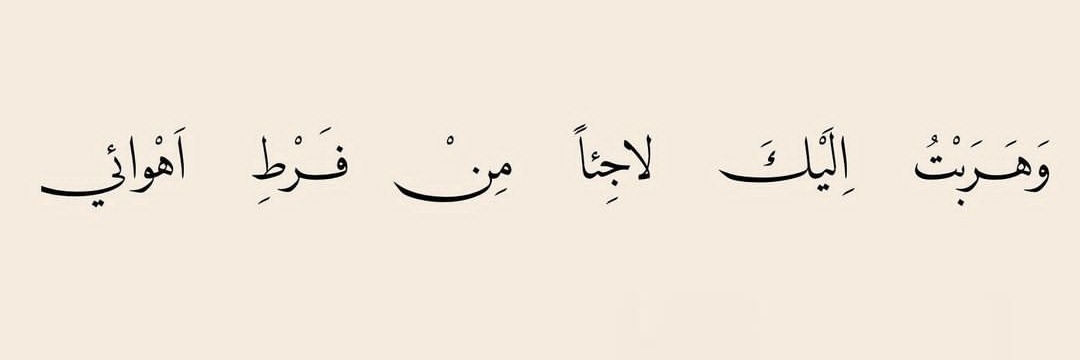 وَهَرَبْتُ اِلَيْكَ لاجِئاً مِنْ فَرْطِ اَهْوائي